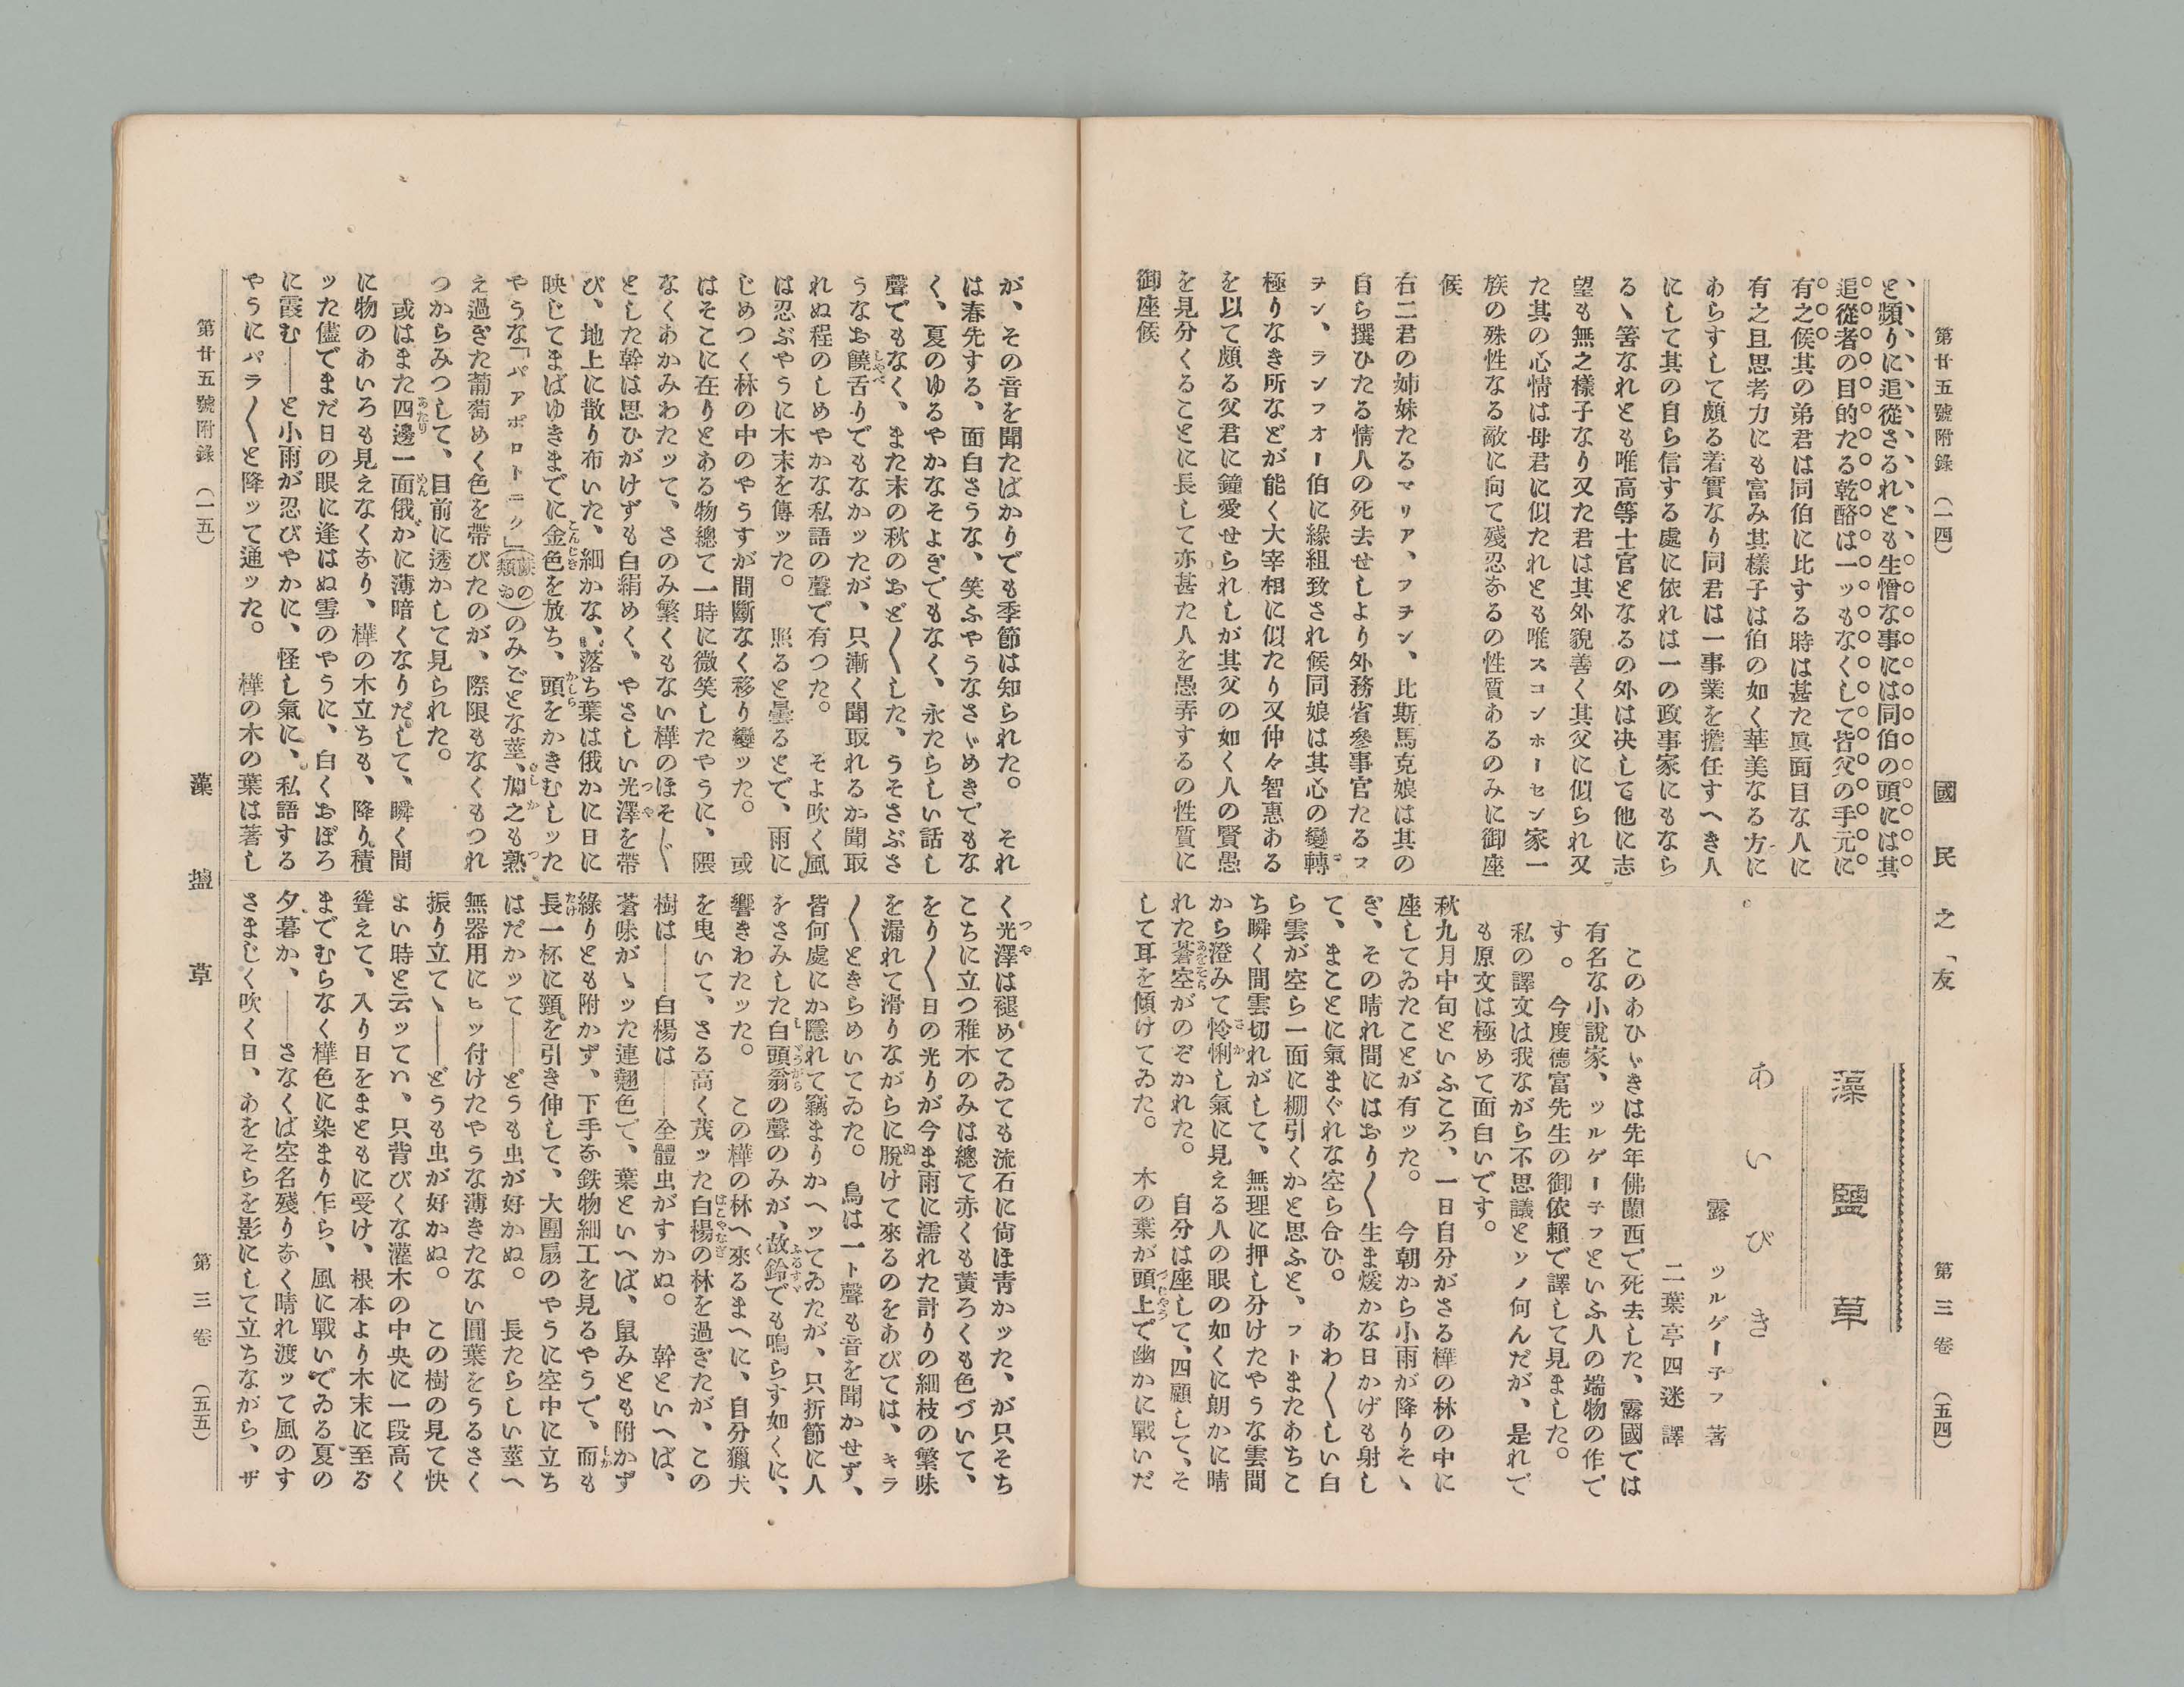 第廿五號附錄 (一四) 國民之友 第三卷 (五四)
と頻りに追從さるれとも生憎な事には同伯の頭には其
追從者の目的たる乾酪は一ッもなくして皆父の手元に
有之候其の弟君は同伯に比する時は甚た眞面目な人に
有之且思考力にも富み其樣子は伯の如く華美なる方に
あらすして頗る着實なり同君は一事業を擔任すへき人
にして其の自ら信する處に依れは一の政事家にもなら
るゝ筈なれとも唯高等士官となるの外は决して他に志
望も無之樣子なり又た君は其外貌善く其父に似られ又
た其の心情は母君に似たれとも唯スコンホーセン家一
族の殊性なる敵に向て殘忍なるの性質あるのみに御座
候
右二君の姉妹たるマリア、フヲン、比斯馬克娘は其の
自ら撰ひたる情人の死去せしより外務省參事官たるフ
ヲン、ランフオー伯に緣組致され候同娘は其心の變轉
極りなき所などが能く大宰相に似たり又仲々智惠ある
を以て頗る父君に鐘愛せられしが其父の如く人の賢愚
を見分くることに長して亦甚た人を愚弄するの性質に
御座候
藻鹽草
あいびき
露 ツルゲー子フ 著
二葉亭四迷 譯
このあひゞきは先年佛蘭西で死去した、露國では
有名な小說家、ツルゲー子フといふ人の端物の作で
す。 今度德富先生の御依賴で譯して見ました。
私の譯文は我ながら不思議とソノ何んだが、是れで
も原文は極めて面白いです。
秋九月中旬といふころ、一日自分がさる樺の林の中に
座してゐたことが有ッた。 今朝から小雨が降りそゝ
ぎ、その晴れ間にはおり〱生ま煖かな日かげも射し
て、まことに氣まぐれな空ら合ひ。 あわ〱しい白
ら雲が空ら一面に棚引くかと思ふと、フトまたあちこ
ち瞬く間雲切れがして、無理に押し分けたやうな雲間
から澄みて怜悧し氣に見える人の眼の如くに朗かに晴
れた蒼空がのぞかれた。 自分は座して、四顧して、そ
して耳を傾けてゐた。 木の葉が頭上で幽かに戰いだ
が、その音を聞たばかりでも季節は知られた。 それ
は春先する、面白さうな、笑ふやうなさゞめきでもな
く、夏のゆるやかなそよぎでもなく、永たらしい話し
聲でもなく、また末の秋のおど〱した、うそさぶさ
うなお饒舌りでもなかッたが、只漸く聞取れるか聞取
れぬ程のしめやかな私語の聲で有つた。 そよ吹く風
は忍ぶやうに木末を傳ッた。 照ると曇るとで、雨に
じめつく林の中のやうすが間斷なく移り變ッた。 或
はそこに在りとある物總て一時に微笑したやうに、隈
なくあかみわたッて、さのみ繁くもない樺のほそ〲
とした幹は思ひがけずも白絹めく、やさしい光澤を帶
び、地上に散り布いた、細かな、落ち葉は俄かに日に
映じてまばゆきまでに金色を放ち、頭をかきむしッた
やうな「パアポロトニク」(蕨の類ゐ)のみごとな莖、加之も熟
え過ぎた葡萄めく色を帶びたのが、際限もなくもつれ
つからみつして、目前に透かして見られた。
或はまた四邊一面俄かに薄暗くなりだして、瞬く間
に物のあいろも見えなくなり、樺の木立ちも、降り積
ッた儘でまだ日の眼に逢はぬ雪のやうに、白くおぼろ
に霞む――と小雨が忍びやかに、怪し氣に、私語する
やうにパラ〱と降ッて通ッた。 樺の木の葉は著し
く光澤は褪めてゐても流石に尙ほ靑かッた、が只そち
こちに立つ稚木のみは總て赤くも黃ろくも色づいて、
をり〱日の光りが今ま雨に濡れた計りの細枝の繁味
を漏れて滑りながらに脫けて來るのをあびては、キラ
〱ときらめいてゐた。 鳥は一ト聲も音を聞かせず、
皆何處にか隱れて竊まりかへッてゐたが、只折節に人
をさみした白頭翁の聲のみが、故鈴でも鳴らす如くに、
響きわたッた。 この樺の林へ來るまへに、自分獵犬
を曳いて、さる高く茂ッた白楊の林を過ぎたが、この
樹は――白楊は――全體虫がすかぬ。 幹といへば、
蒼味がゝッた連翹色で、葉といへば、鼠みとも附かず
綠りとも附かず、下手な鉄物細工を見るやうで、而も
長一杯に頸を引き伸して、大團扇のやうに空中に立ち
はだかッて――どうも虫が好かぬ。 長たらしい莖へ
無器用にヒッ付けたやうな薄きたない圓葉をうるさく
振り立てゝ――どうも虫が好かぬ。 この樹の見て快
よい時と云ッてハ、只背びくな灌木の中央に一段高く
聳えて、入り日をまともに受け、根本より木末に至る
までむらなく樺色に染まり乍ら、風に戰いでゐる夏の
夕暮か、――さなくば空名殘りなく晴れ渡ッて風のす
さまじく吹く日、あをそらを影にして立ちながら、ザ
第廿五號附錄 (一五) 藻塩草 第三卷 (五五)